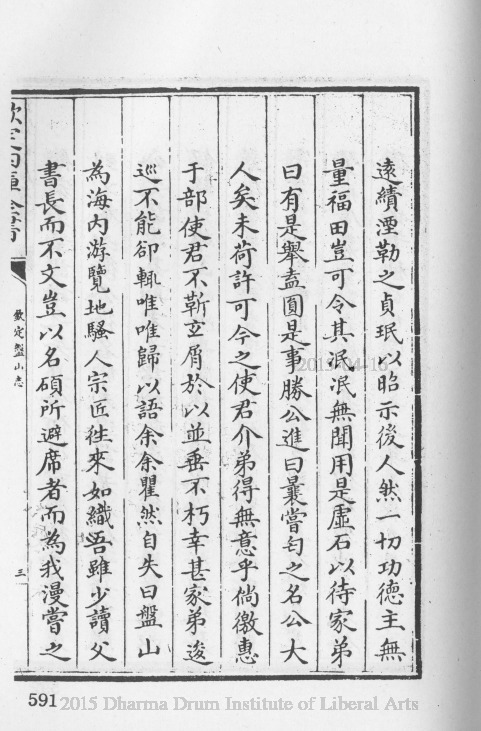 遠績湮勒之貞珉以昭示後人然一切功德主無
量福田豈可令其泯泯無聞用是虛石以待家弟
曰有是舉盍圓是事勝公進曰曩嘗匄之名公大
人矣未荷許可今之使君介弟得無意乎倘徼惠
于部使君不靳玄屑於以並垂不朽幸甚家弟逡
巡不能卻輒唯唯歸以語余余瞿然自失曰盤山
為海內游覽地騷人宗匠徃來如織吾雖少讀父
書長而不文豈以名碩所避席者而為我漫嘗之
欽定四庫全書
欽定盤山志
三
2015-04-16
591
2015 Dharma Drum Institute of Liberal Arts